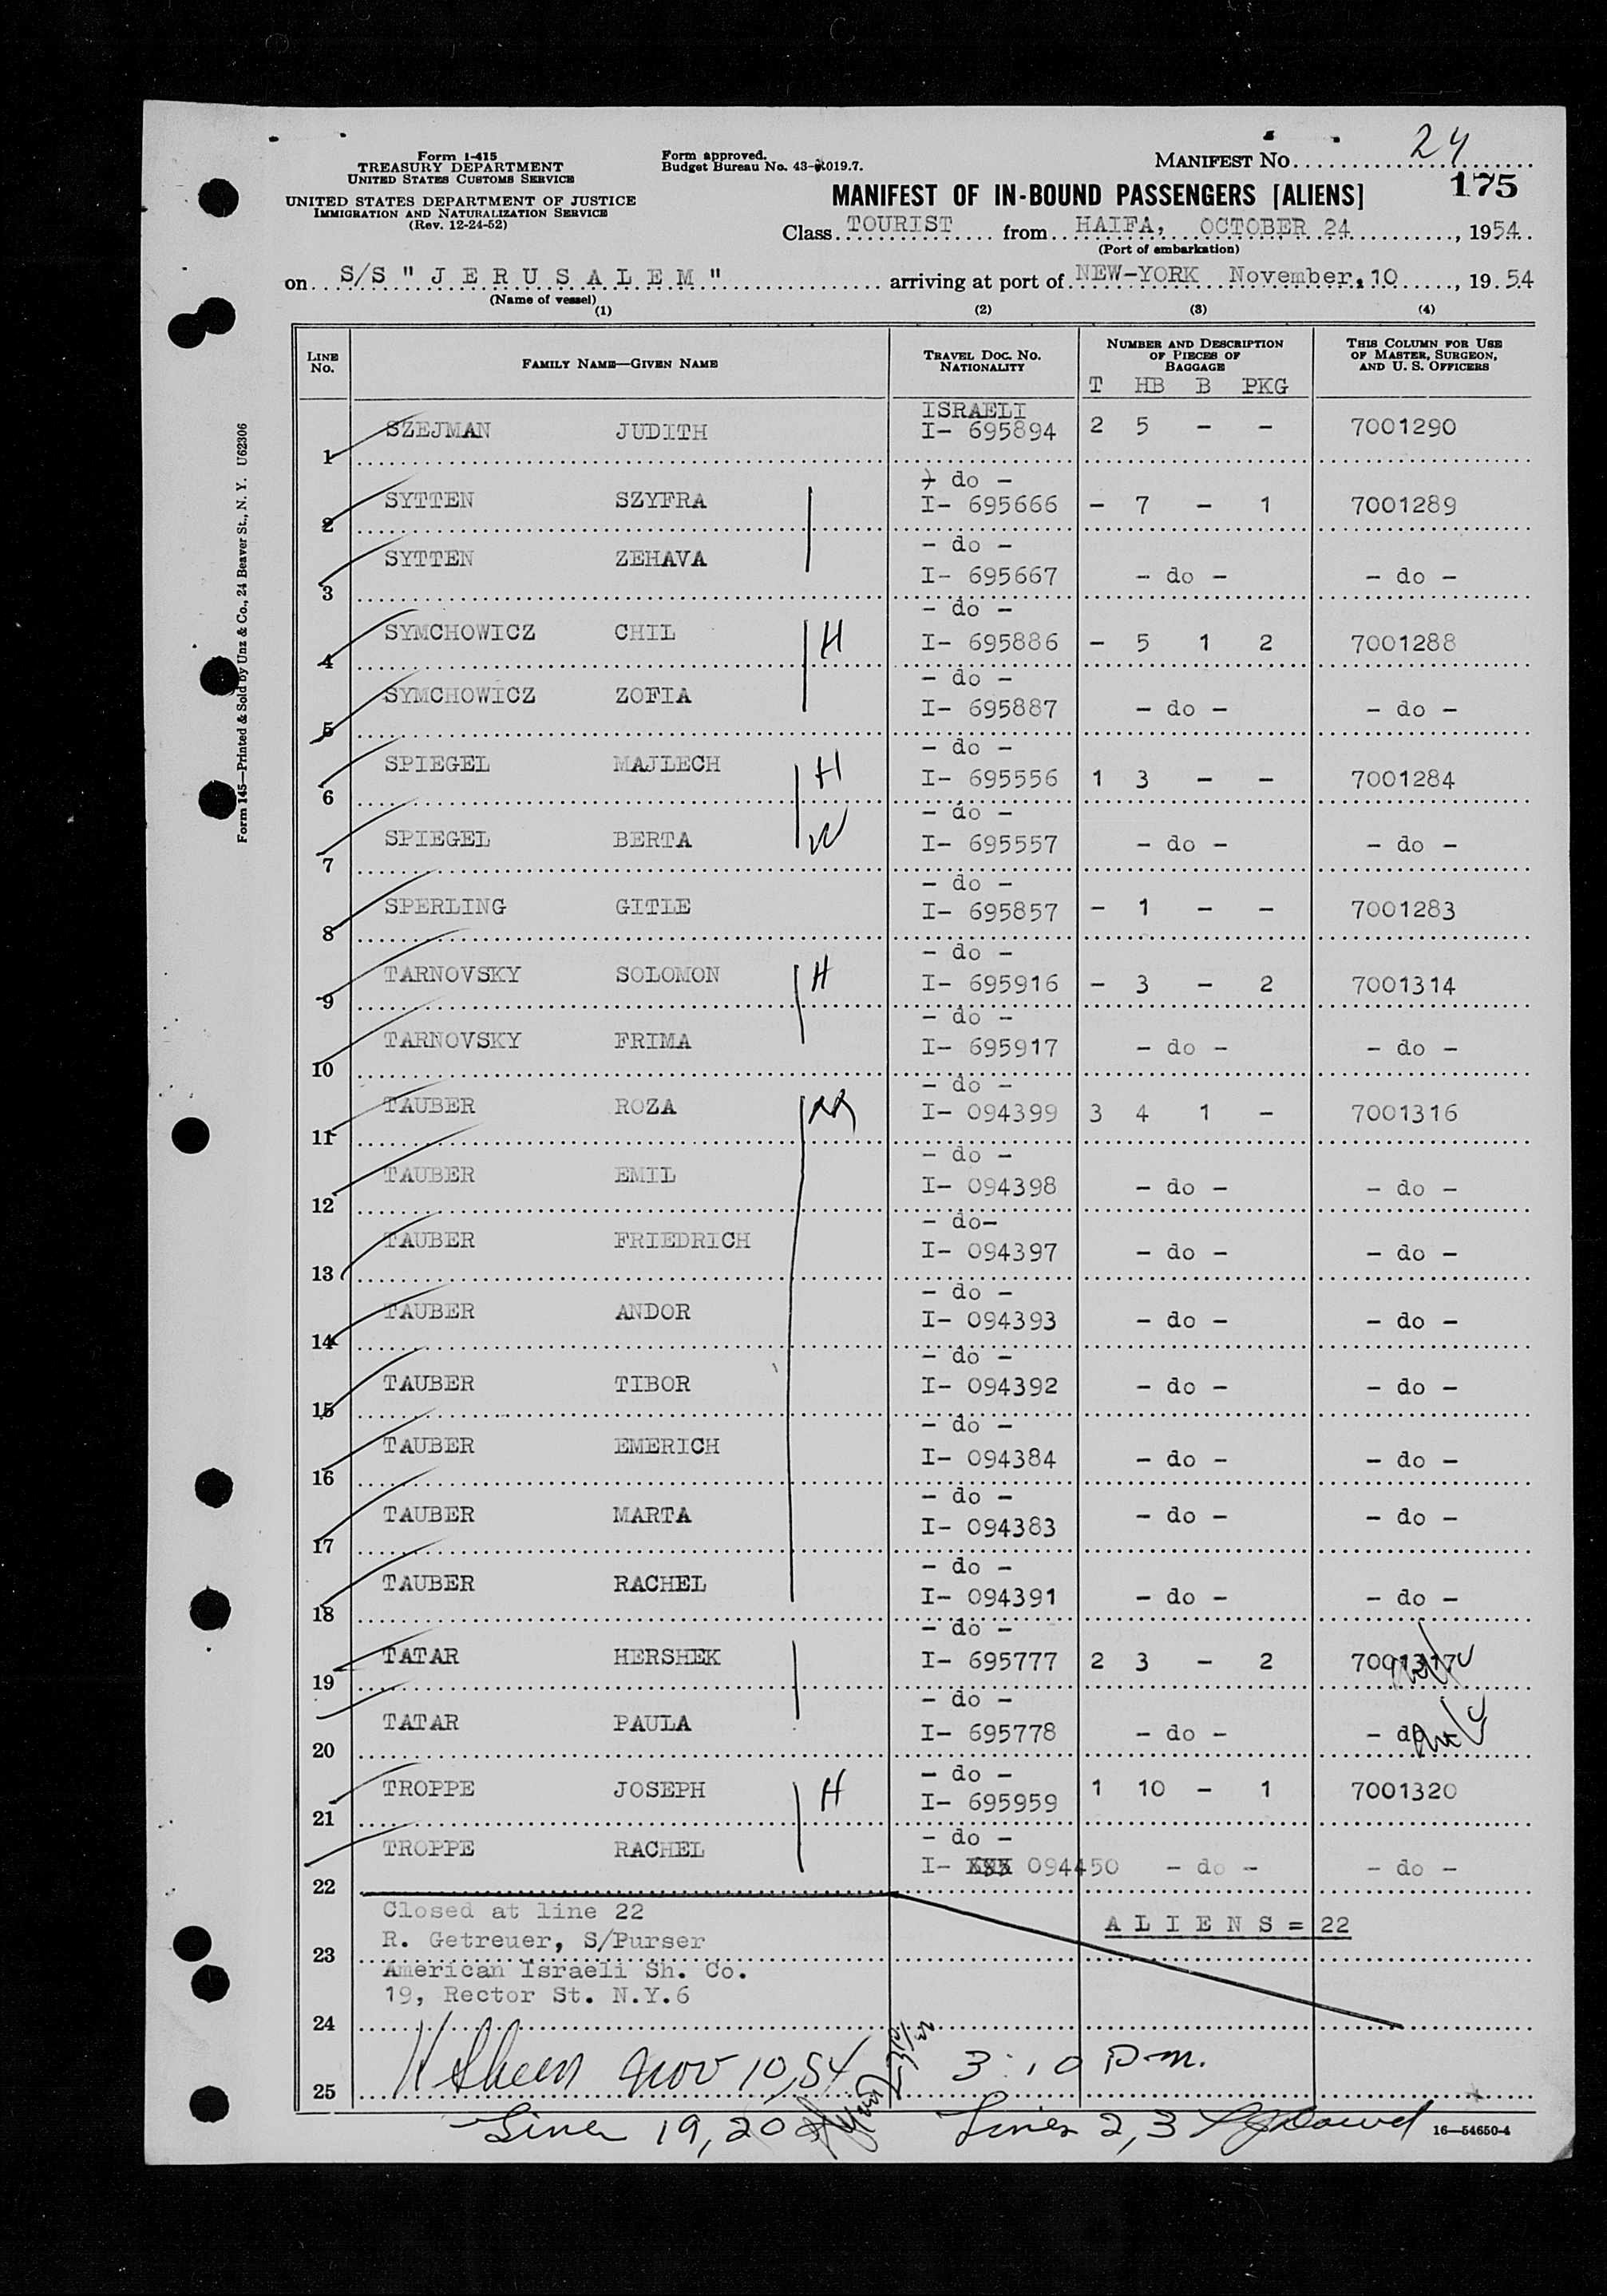 Form I-415
TREASURY DEPARTMENT
UNITED STATES CUSTOMS SERVICE
UNITED STATES DEPARTMENT OF JUSTICE
IMMIGRATION AND NATURALIZATION SERVICE
(Rev. 12-24-52)
Form approved.
Budget Bureau No. 43-R019.7.
MANIFEST NO. 24
175
MANIFEST OF IN-BOUND PASSENGERS [ALIENS]
Class TOURIST from HAIFA, OCTOBER 24, 1954
(Port of embarkation)
on S/S "JERUSALEM" arriving at port of NEW-YORK November, 10, 1954
(Name of vessel)
(1) (2) (3) (4)
LINE NO. FAMILY NAME—GIVEN NAME TRAVEL DOC. NO. NATIONALITY NUMBER AND DESCRIPTION OF PIECES OF BAGGAGE THIS COLUMN FOR USE OF MASTER, SURGEON, AND U. S. OFFICERS
T HB B PKG
ISRAELI
1 SZEJMAN JUDITH I- 695894 2 5 - - 7001290
- do -
2 SYTTEN SZYFRA I- 695666 - 7 - 1 7001289
- do -
3 SYTTEN ZEHAVA I- 695667 - do - - do -
- do -
4 SYMCHOWICZ CHIL H I- 695886 - 5 1 2 7001288
- do -
5 SYMCHOWICZ ZOFIA I- 695887 - do - - do -
- do -
6 SPIEGEL MAJLECH H I- 695556 1 3 - - 7001284
- do -
7 SPIEGEL BERTA W I- 695557 - do - - do -
- do -
8 SPERLING GITLE I- 695857 - 1 - - 7001283
- do -
9 TARNOVSKY SOLOMON H I- 695916 - 3 - 2 7001314
- do -
10 TARNOVSKY FRIMA I- 695917 - do - - do -
- do -
11 TAUBER ROZA I- 094399 3 4 1 - 7001316
- do -
12 TAUBER EMIL I- 094398 - do - - do -
- do-
13 TAUBER FRIEDRICH I- 094397 - do - - do -
- do -
14 TAUBER ANDOR I- 094393 - do - - do -
- do -
15 TAUBER TIBOR I- 094392 - do - - do -
- do -
16 TAUBER EMERICH I- 094384 - do - - do -
- do -
17 TAUBER MARTA I- 094383 - do - - do -
- do -
18 TAUBER RACHEL I- 094391 - do - - do -
- do -
19 TATAR HERSHEK I- 695777 2 3 - 2 7001317
- do -
20 TATAR PAULA I- 695778 - do - - do
- do -
21 TROPPE JOSEPH H I- 695959 1 10 - 1 7001320
- do -
22 TROPPE RACHEL I- 094450 - do - - do -
Closed at line 22
ALIENS = 22
23 R. Getreuer, S/Purser
American Israeli Sh. Co.
19, Rector St. N.Y.6
24
25 Nov 10, 54 3:10 p.m.
Lines 19, 20 Lines 2, 3
16—54650-4
Form 145—Printed & Sold by Unz & Co., 24 Beaver St., N. Y. U62306